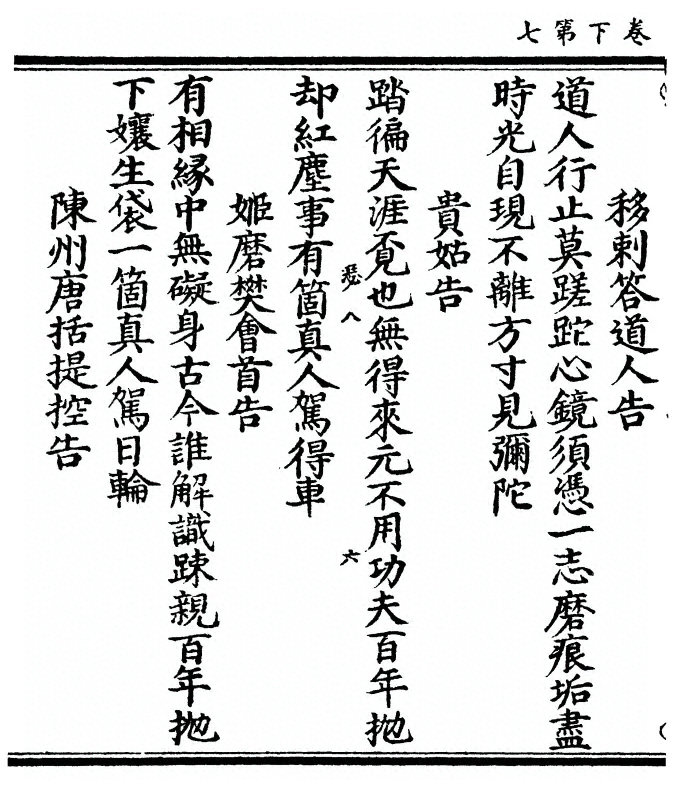 卷下第七
移剌答道人告
道人行止莫蹉跎心鏡須憑一志磨痕垢盡
時光自現不離方寸見彌陀
貴姑告
踏徧天涯覔也無得來元不用功夫百年抛
惡八
六
却紅塵事有箇真人駕得車
姬磨樊會首告
有相緣中無礙身古今誰解識踈親百年抛
下孃生袋一箇真人駕日輪
陳州唐括提控告